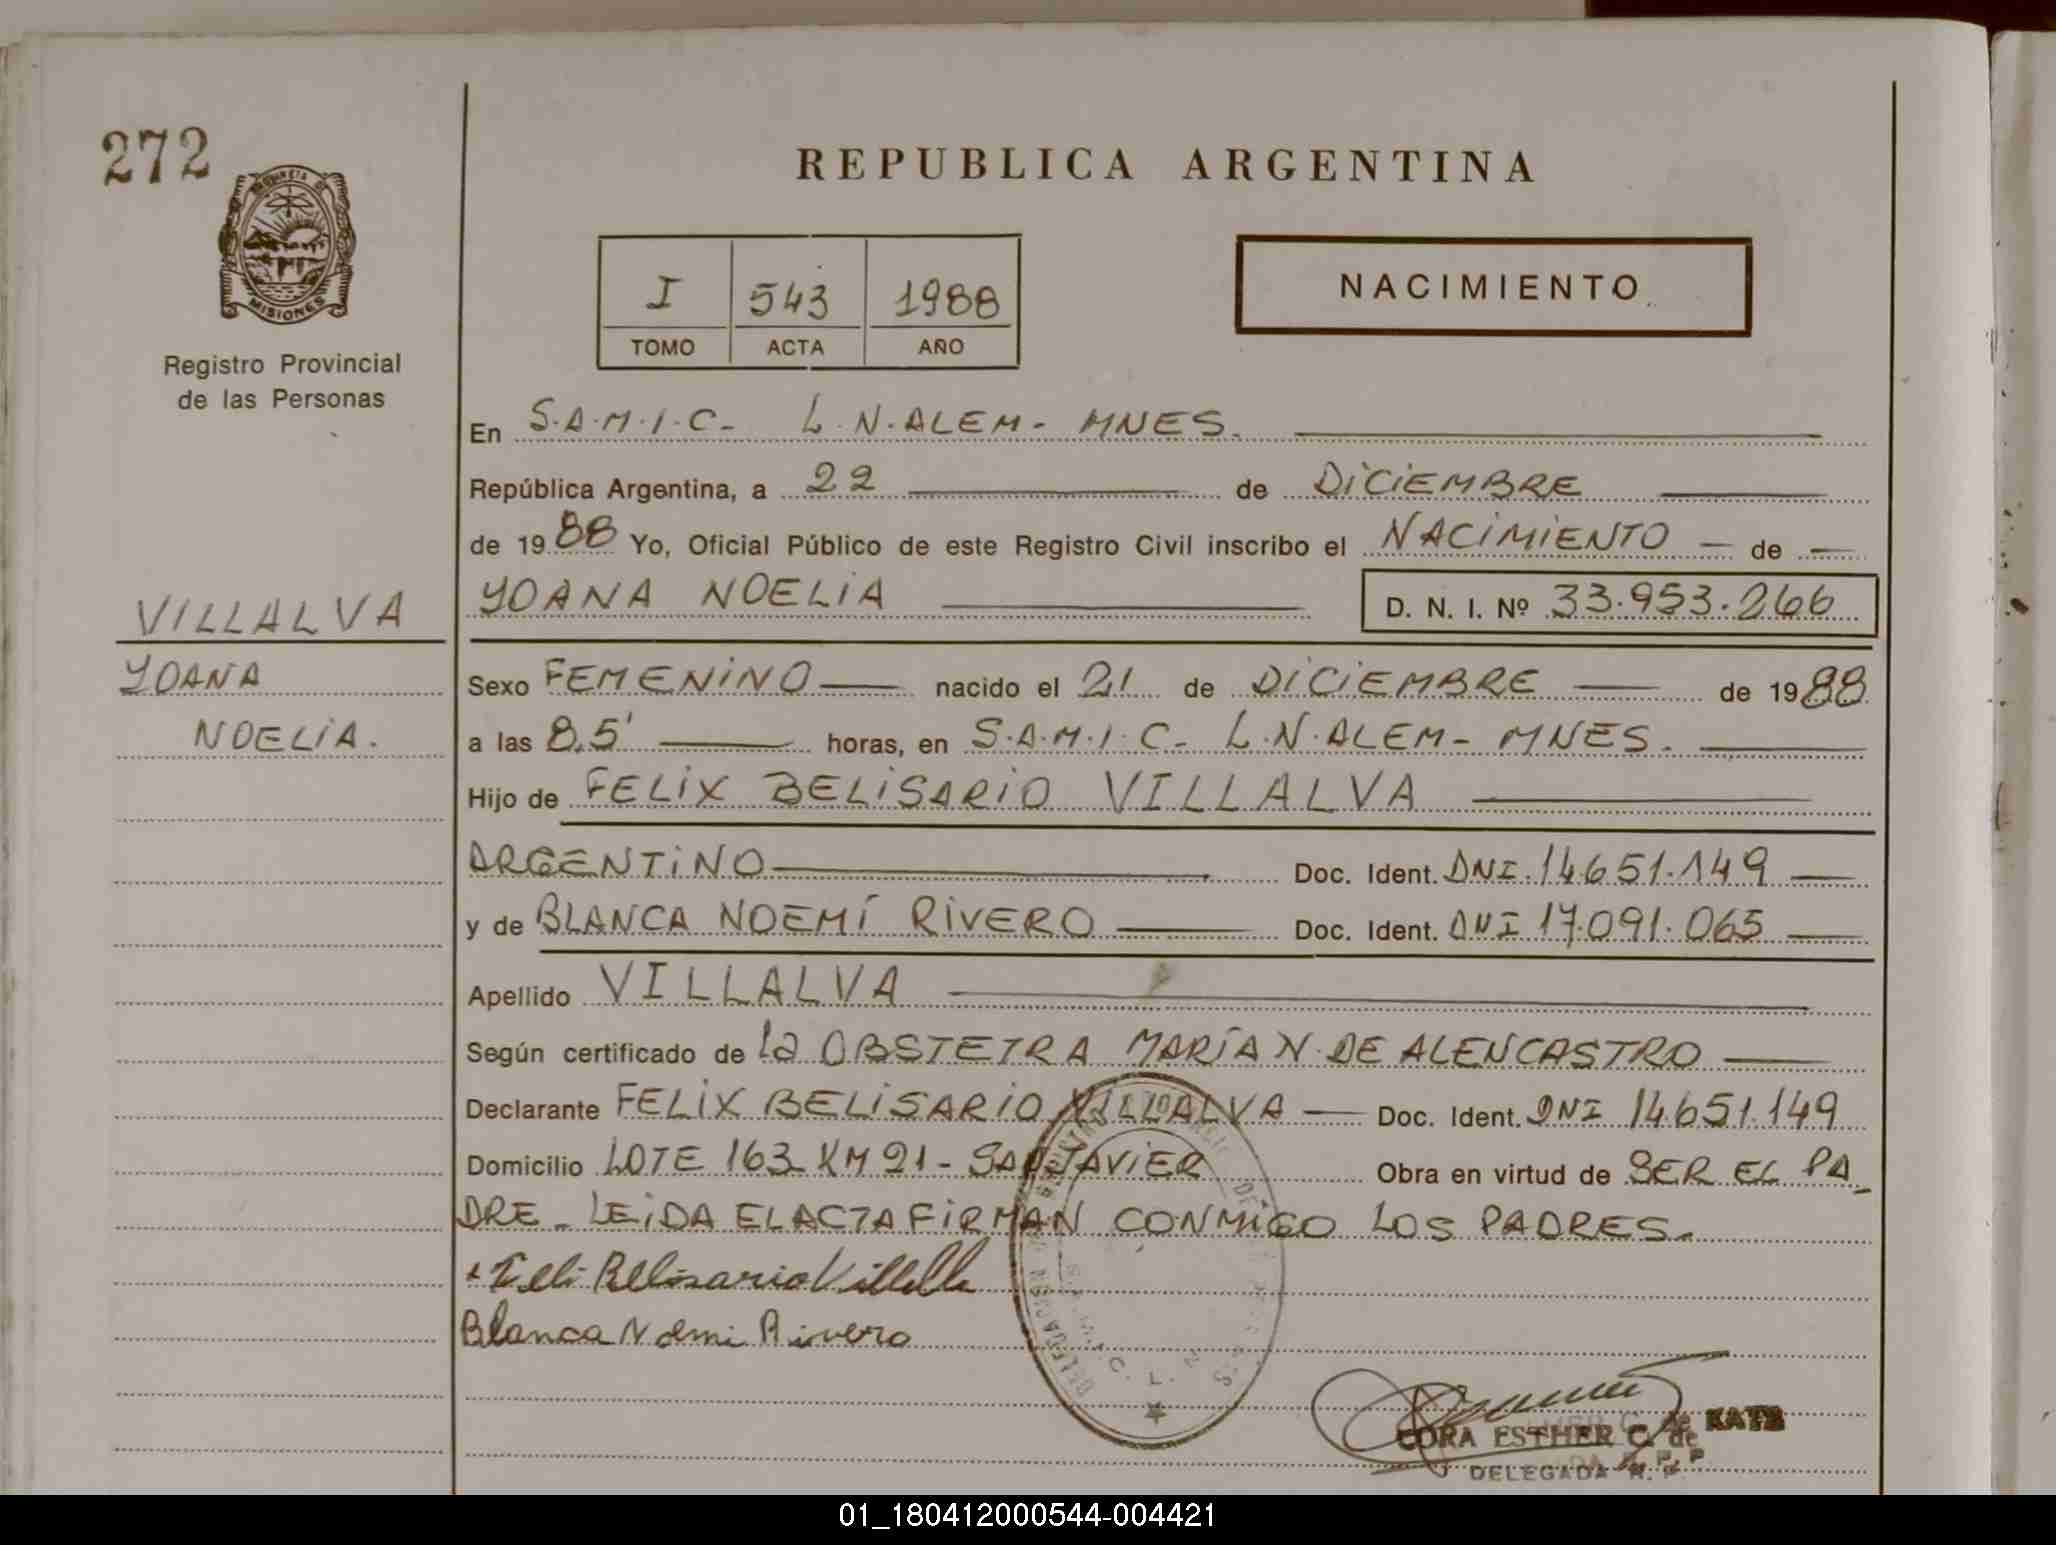 272
REPUBLICA ARGENTINA
MISIONES
Registro Provincial
de las Personas
I 543 1988
TOMO ACTA AÑO
NACIMIENTO
En S.A.M.I.C- L.N.ALEM- MNES.
República Argentina, a 22 de DICIEMBRE
de 1988 Yo, Oficial Público de este Registro Civil inscribo el NACIMIENTO de
YOANA NOELIA D. N. I. Nº 33.953.266
VILLALVA
YOANA
NOELIA.
Sexo FEMENINO nacido el 21 de DICIEMBRE de 1988
a las 8,5' horas, en S.A.M.I.C- L.N.ALEM- MNES.
Hijo de FELIX BELISARIO VILLALVA
ARGENTINO Doc. Ident. DNI.14.651.149
y de BLANCA NOEMÍ RIVERO Doc. Ident. DNI 17.091.065
Apellido VILLALVA
Según certificado de la OBSTETRA MARÍA N. DE ALENCASTRO
Declarante FELIX BELISARIO VILLALVA Doc. Ident. DNI 14.651.149
Domicilio LOTE 163 KM 21- SAN JAVIER Obra en virtud de SER EL PA_
DRE_ LEIDA EL ACTA FIRMAN CONMIGO LOS PADRES.
Belisario
Blanca Noemi Rivero
CORA ESTHER C. de KATZ
DELEGADA R. P. P.
01_180412000544-004421